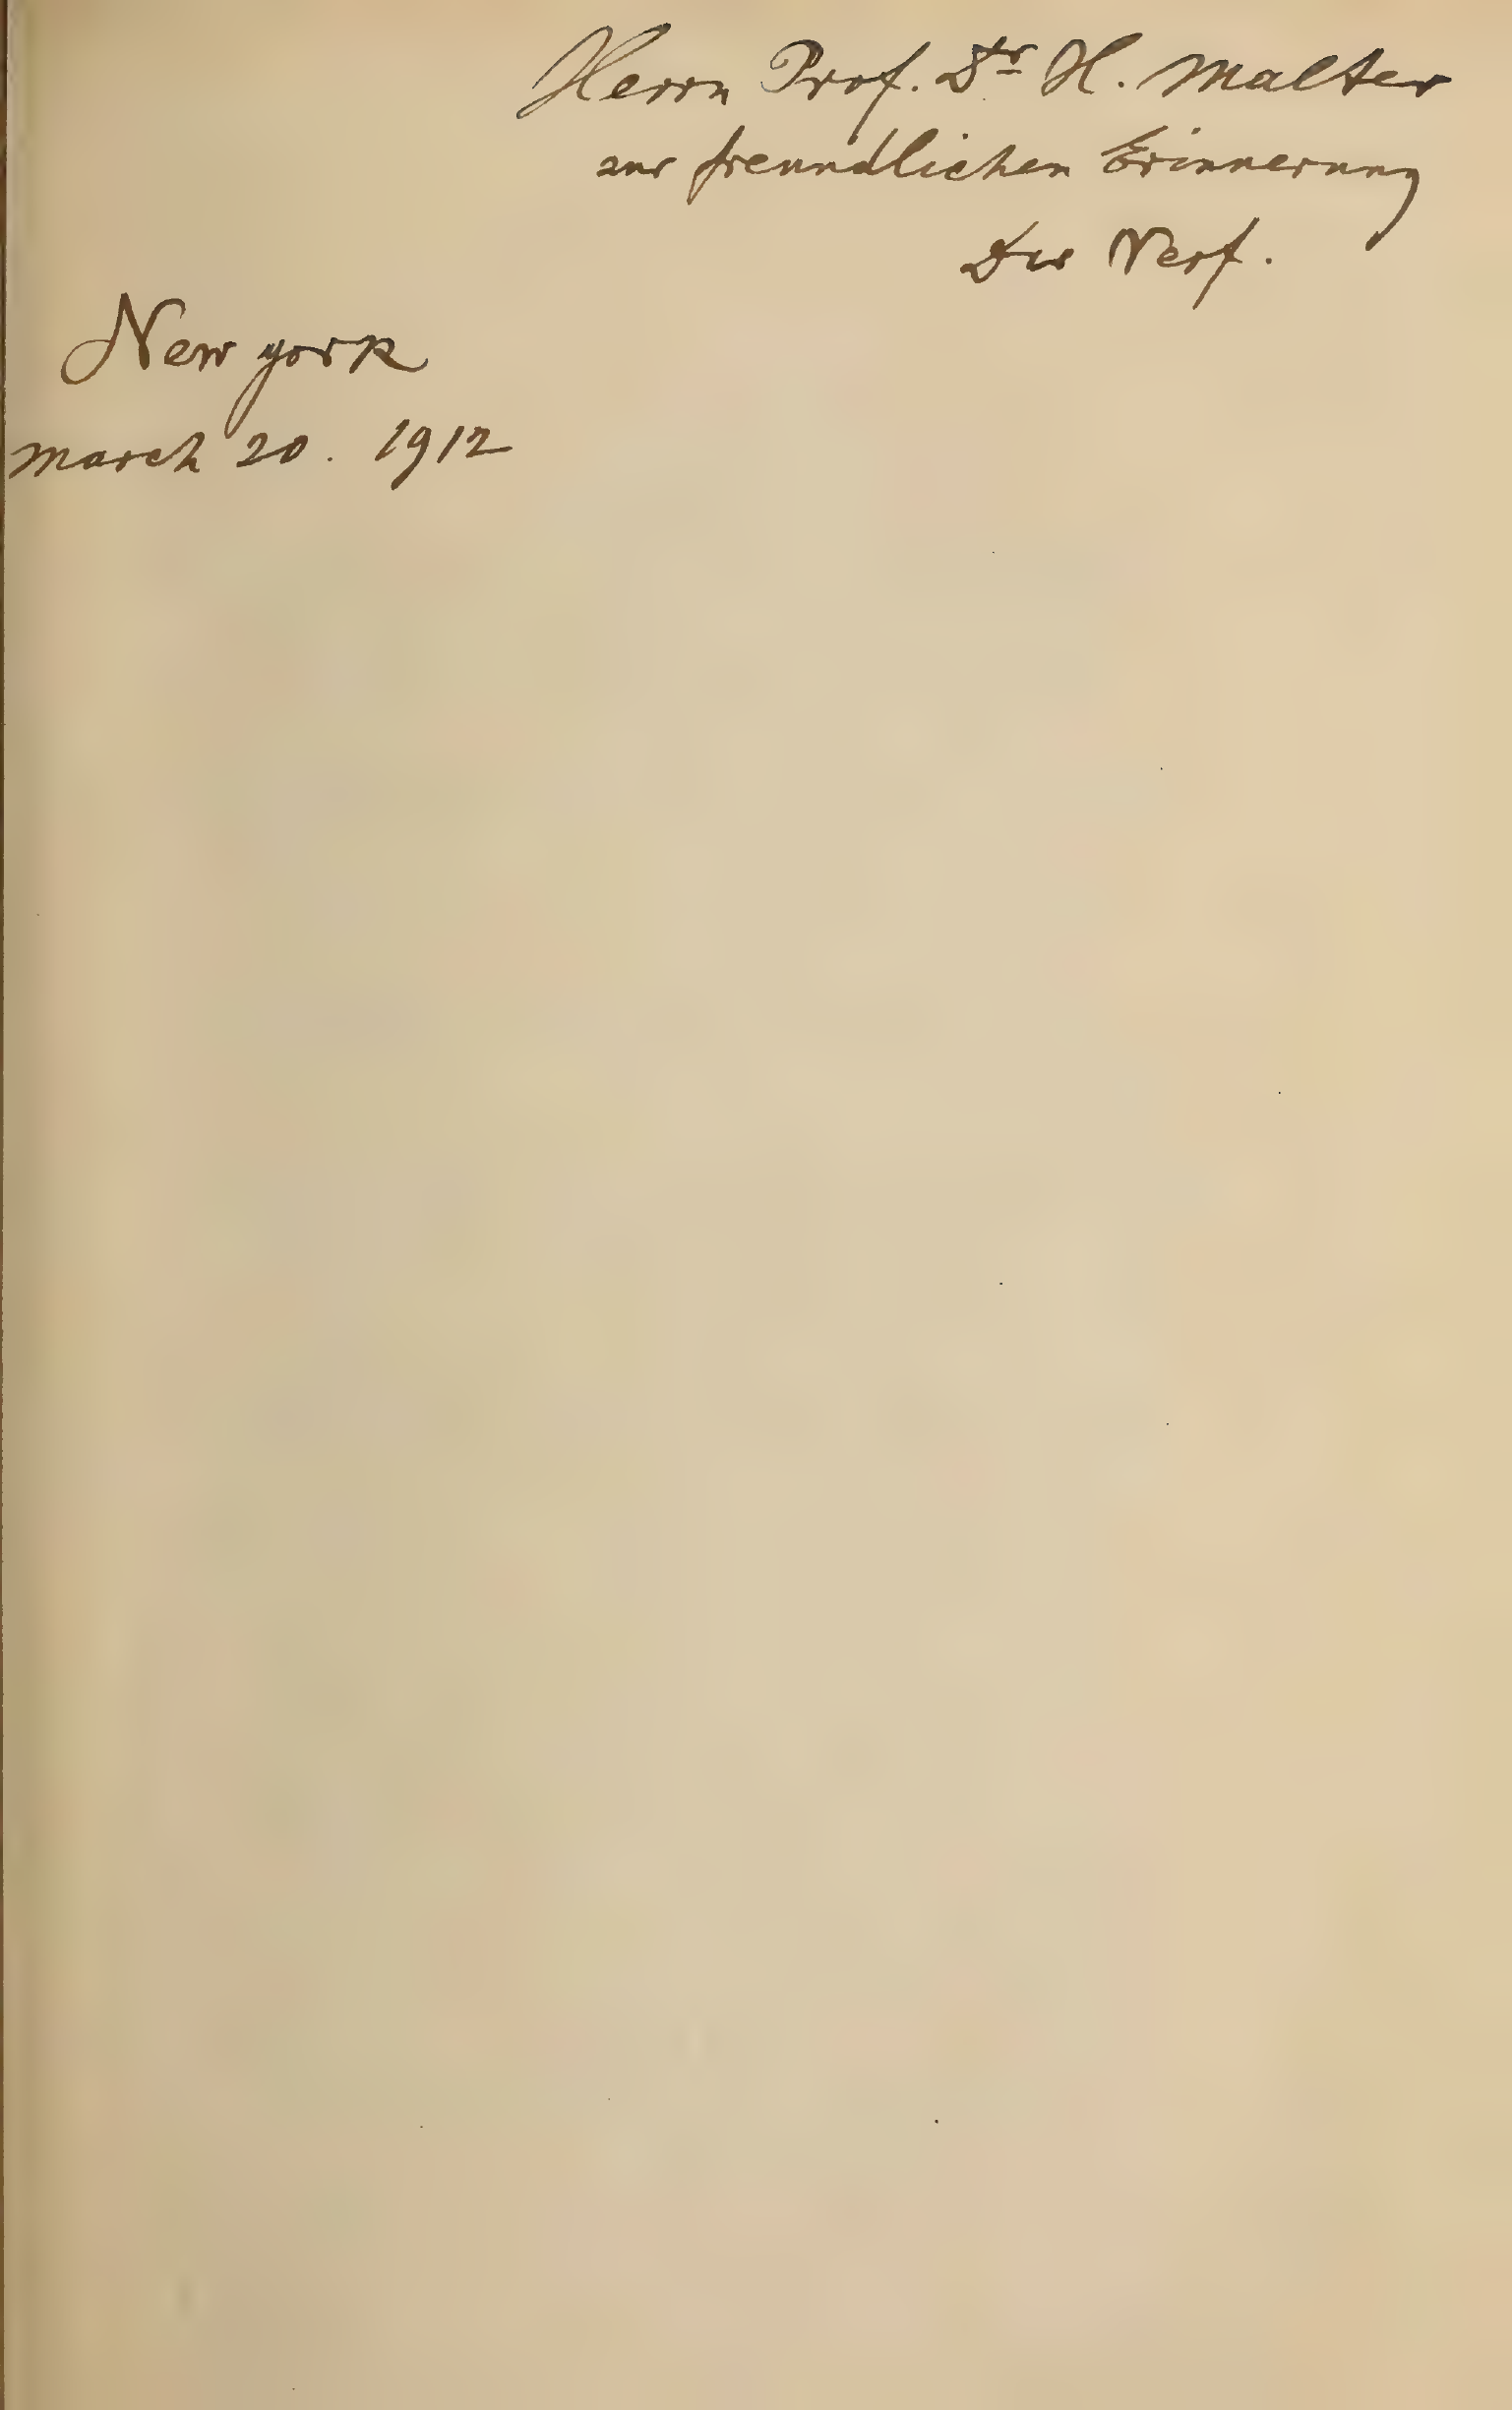 Herrn Prof. Dr H. Malter
zur freundlichen Erinnerung
Der Verf.
New york
march 20. 1912